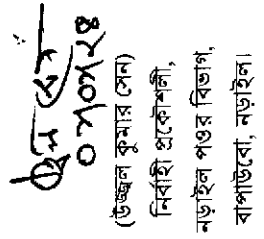 (উজ্জ্বল কুমার সেন)
নির্বাহী প্রকৌশলী,
নড়াইল পওর বিভাগ,
বাপাউবো, নড়াইল।